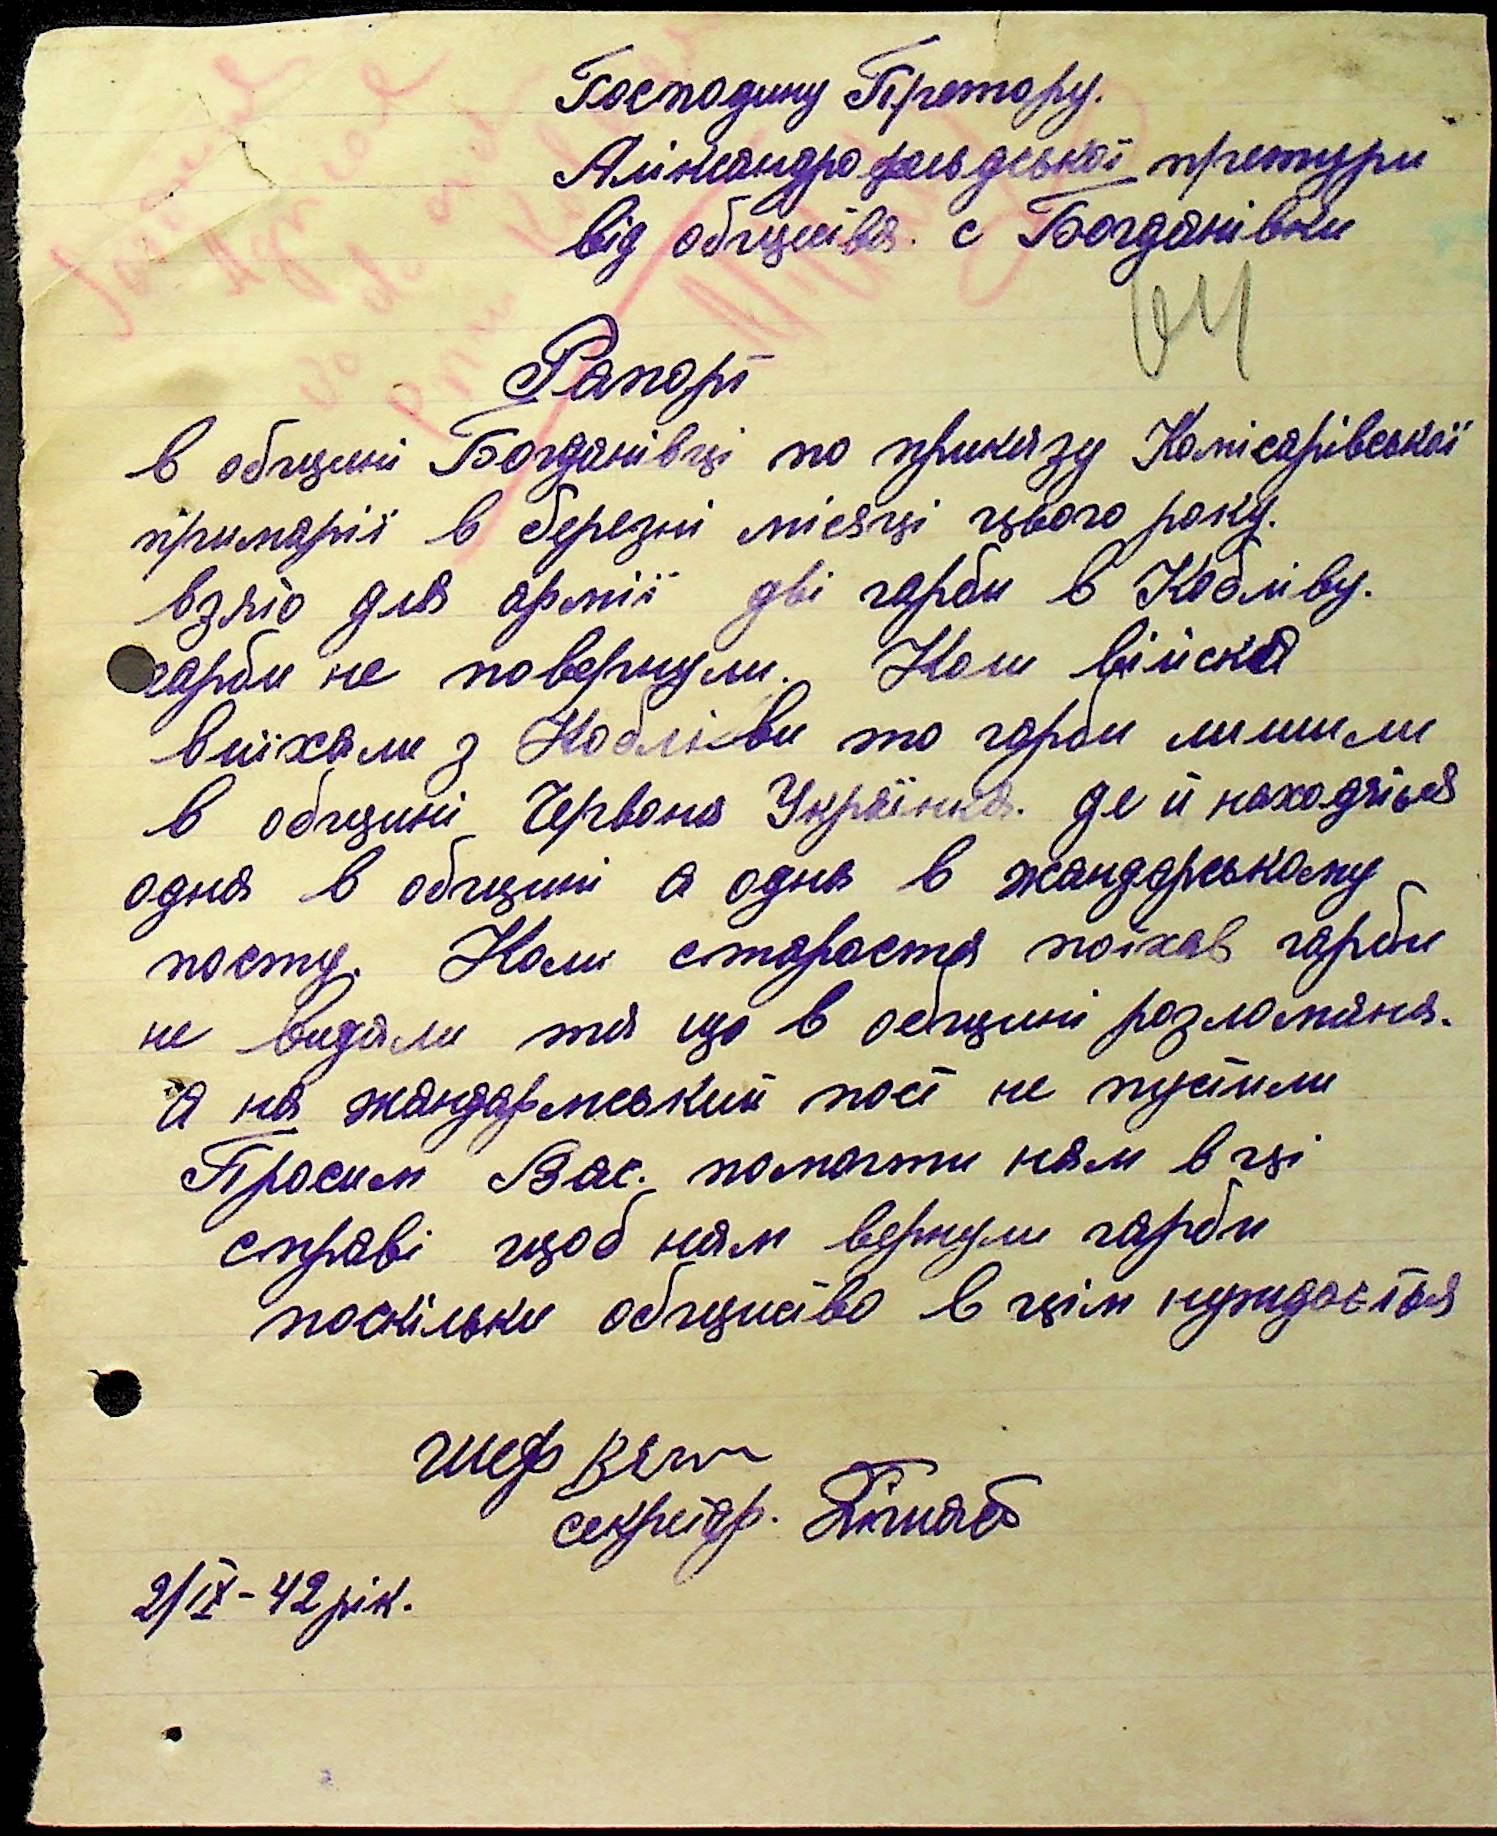 Господину Претору.
Аліксандрофельдської претури
від общиства. с Богданівки
64
Рапорт
в общині Богданівці по приказу Комісарівської
примарії в березні місяці цього року.
взято для армії дві гарби в Кобліву.
гарби не повернули. Коли війска
виїхали з Коблівки то гарби лишили
в общині Червона Українка. де й находяться
одна в общині а одна в жандарському
посту. Коли староста поїхав гарби
не видали та що в общині розломана.
а на жандармський пост не пустили
Просим Вас. помогти нам в ці
справі щоб нам вернули гарби
поскільки общиство в цім нуждається
шеф
секретар.
2/IX-42 рік.